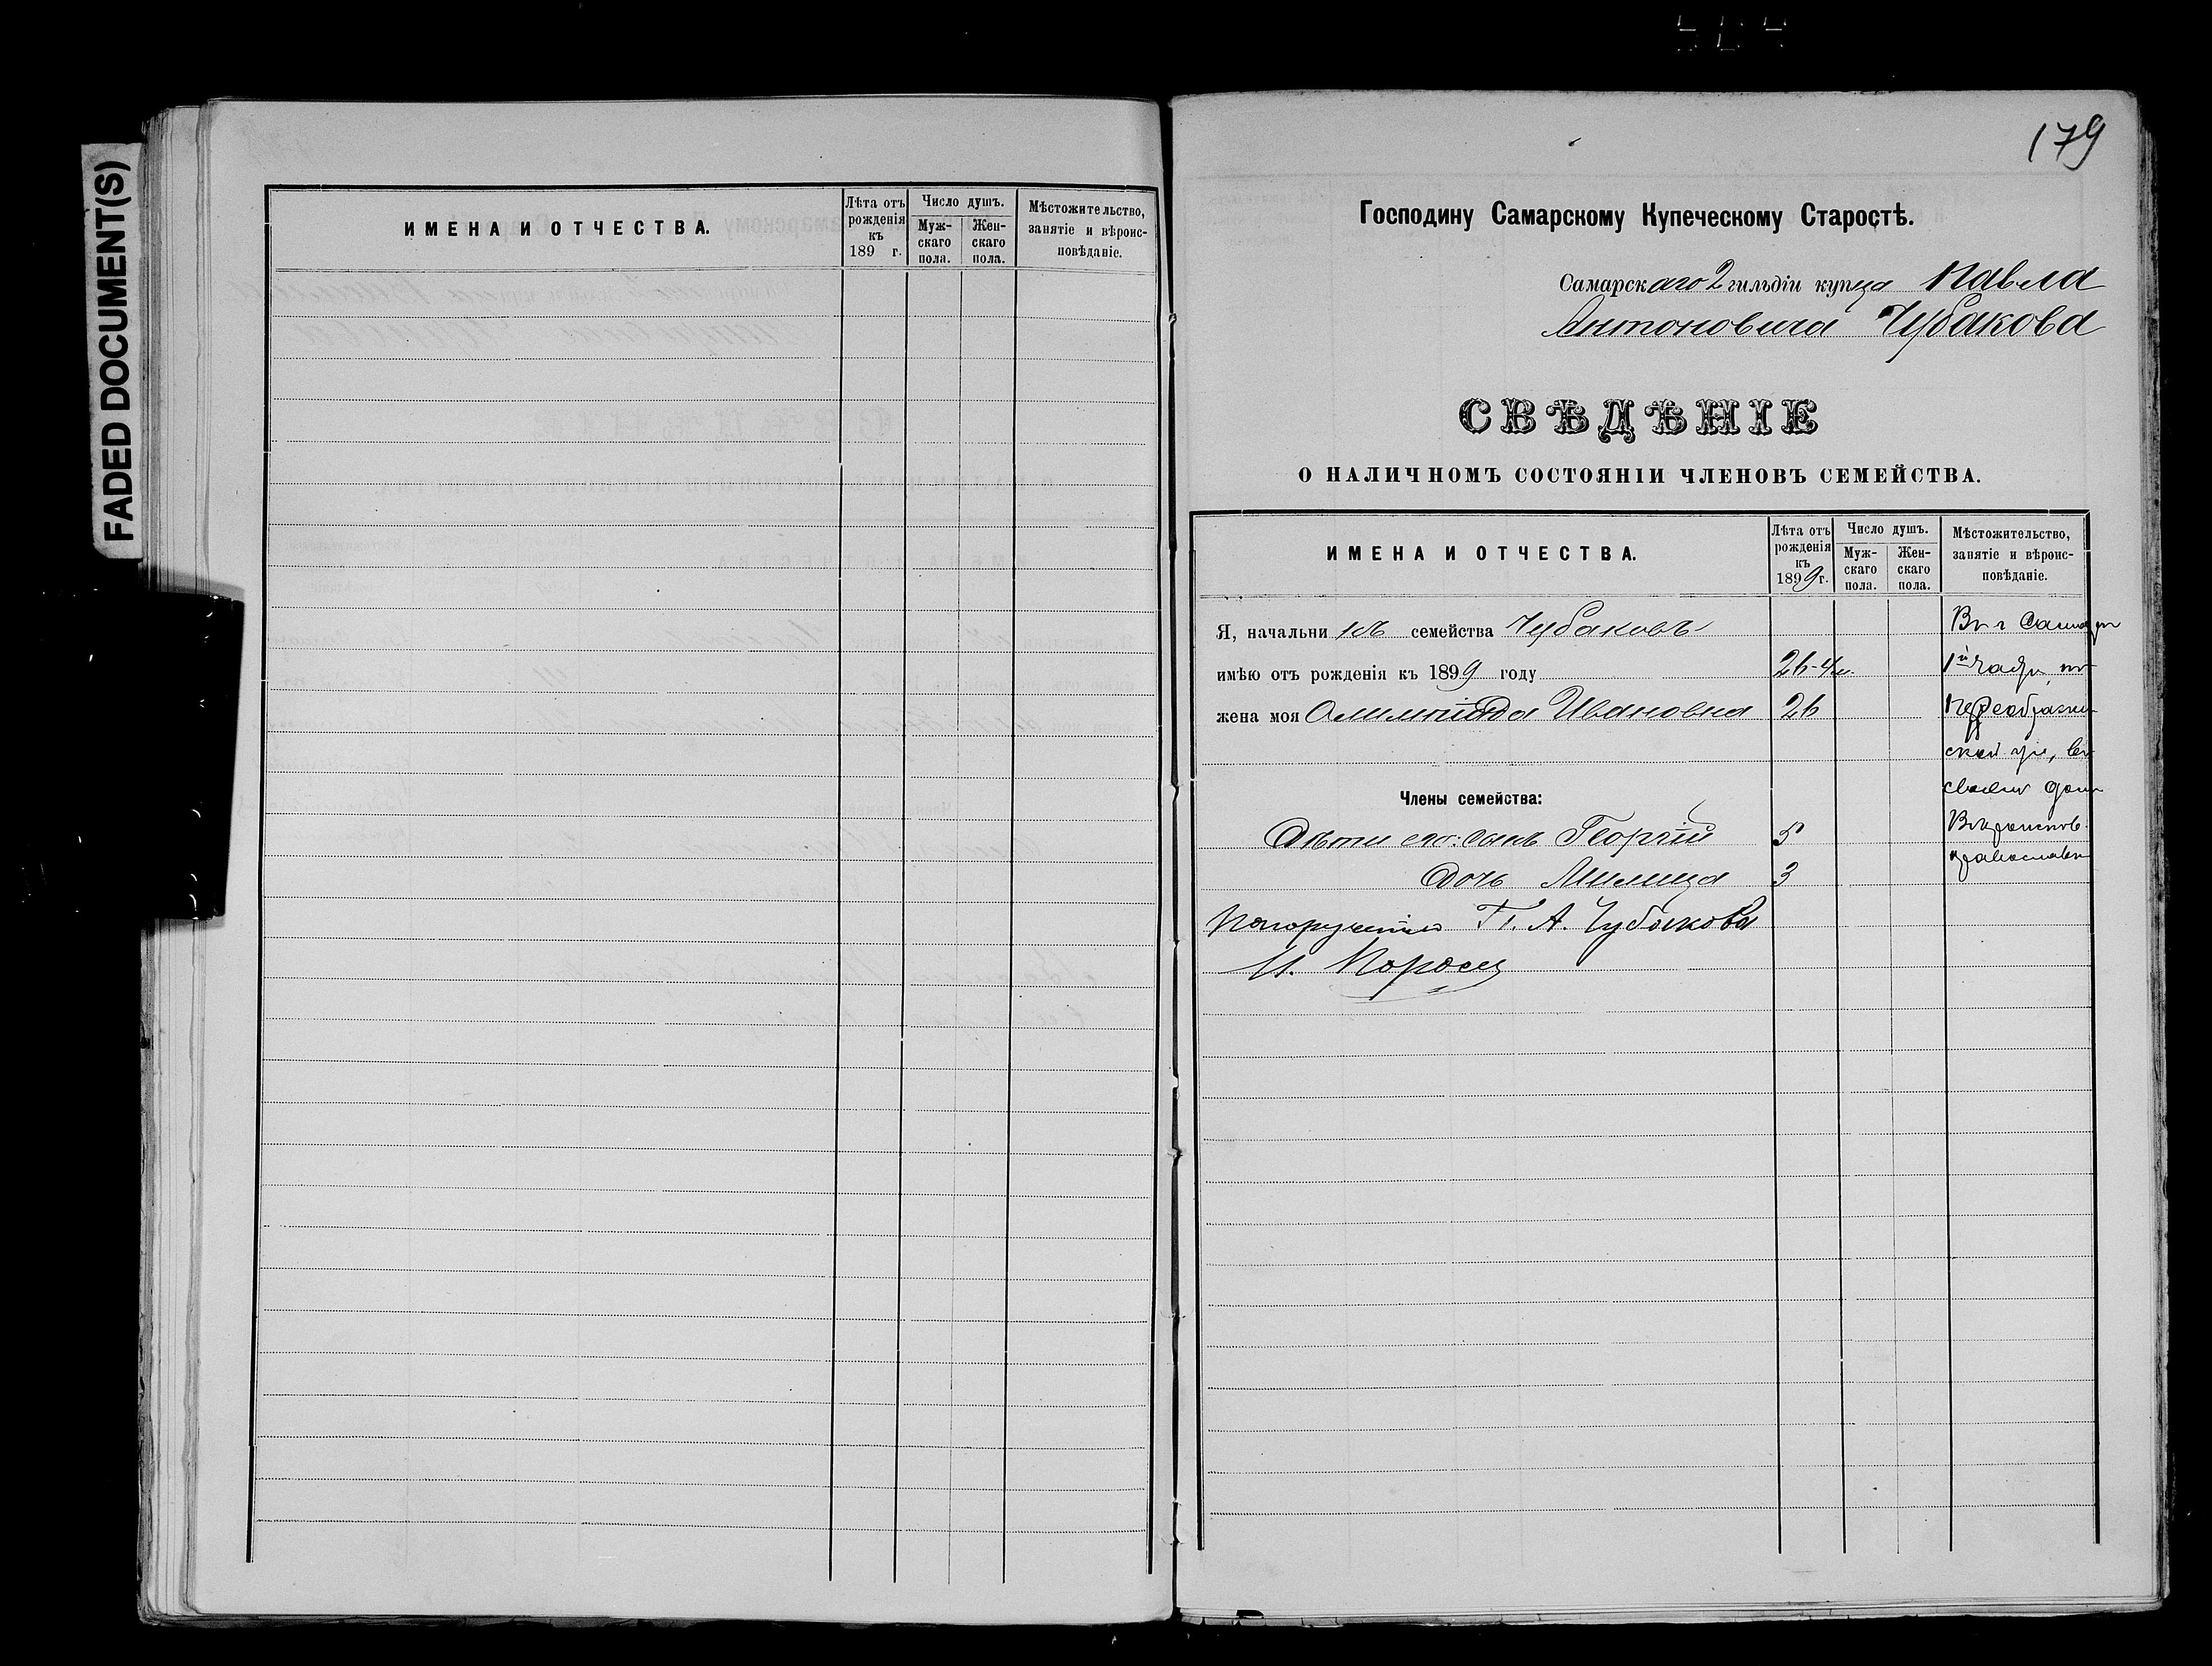 FADED DOCUMENT(S)
ИМЕНА И ОТЧЕСТВА.
Лѣта отъ рожденія къ 189 г.
Число душъ.
Мужскаго пола.
Женскаго пола.
Мѣстожительство, занятіе и вѣроисповѣданіе.
179
Господину Самарскому Купеческому Старостѣ.
Самарскаго 2 гильдіи купца Павла
Антоновича Чубакова
СВѢДѢНІЕ
О НАЛИЧНОМЪ СОСТОЯНІИ ЧЛЕНОВЪ СЕМЕЙСТВА.
ИМЕНА И ОТЧЕСТВА.
Лѣта отъ рожденія къ 1899 г.
Число душъ.
Мужскаго пола.
Женскаго пола.
Мѣстожительство, занятіе и вѣроисповѣданіе.
Я, начальникъ семейства Чубаковъ Въ г Самарѣ
имѣю отъ рожденія къ 1899 году 26 1й части, по
жена моя Ивановна 26
ской ул, въ
своемъ домѣ
Члены семейства:
Дѣти его: сынъ Георгій 5
православн
Дочь Милица 3
По порученію П. А. Чубакова